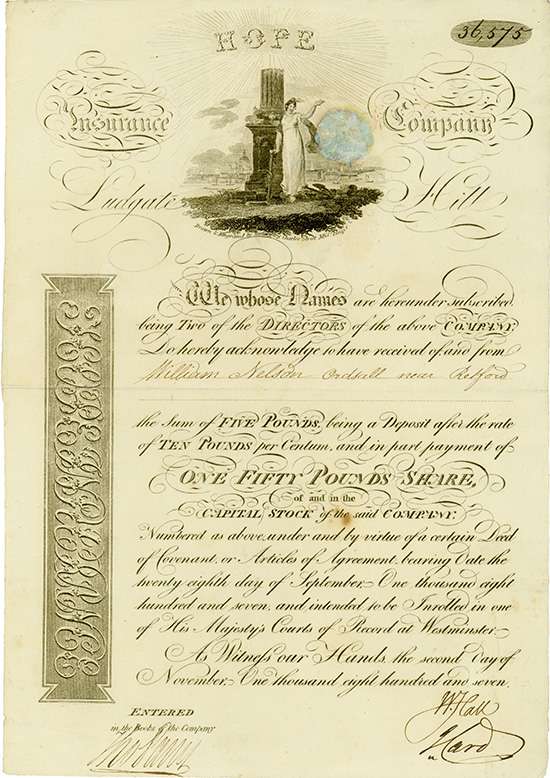 HOPE
36,575
Insurance Company
Ludgate Hill
We whose Names are hereunder subscribed
being Two of the DIRECTORS of the above COMPANY,
Do hereby acknowledge to have received of and from
William Nelson Ordsall near Retford
the Sum of FIVE POUNDS, being a Deposit after the rate
of TEN POUNDS per Centum, and in part payment of
ONE FIFTY POUNDS SHARE,
of and in the
CAPITAL STOCK of the said COMPANY.
Numbered as above, under and by virtue of a certain Deed
of Covenant, or Articles of Agreement, bearing Date the
twenty eighth day of September, One thousand eight
hundred and seven, and intended to be Inrolled in one
of His Majesty's Courts of Record at Westminster.
As Witness our Hands, the second day of
November, One thousand eight hundred and seven.
ENTERED
in the Books of the Company
W. Hall